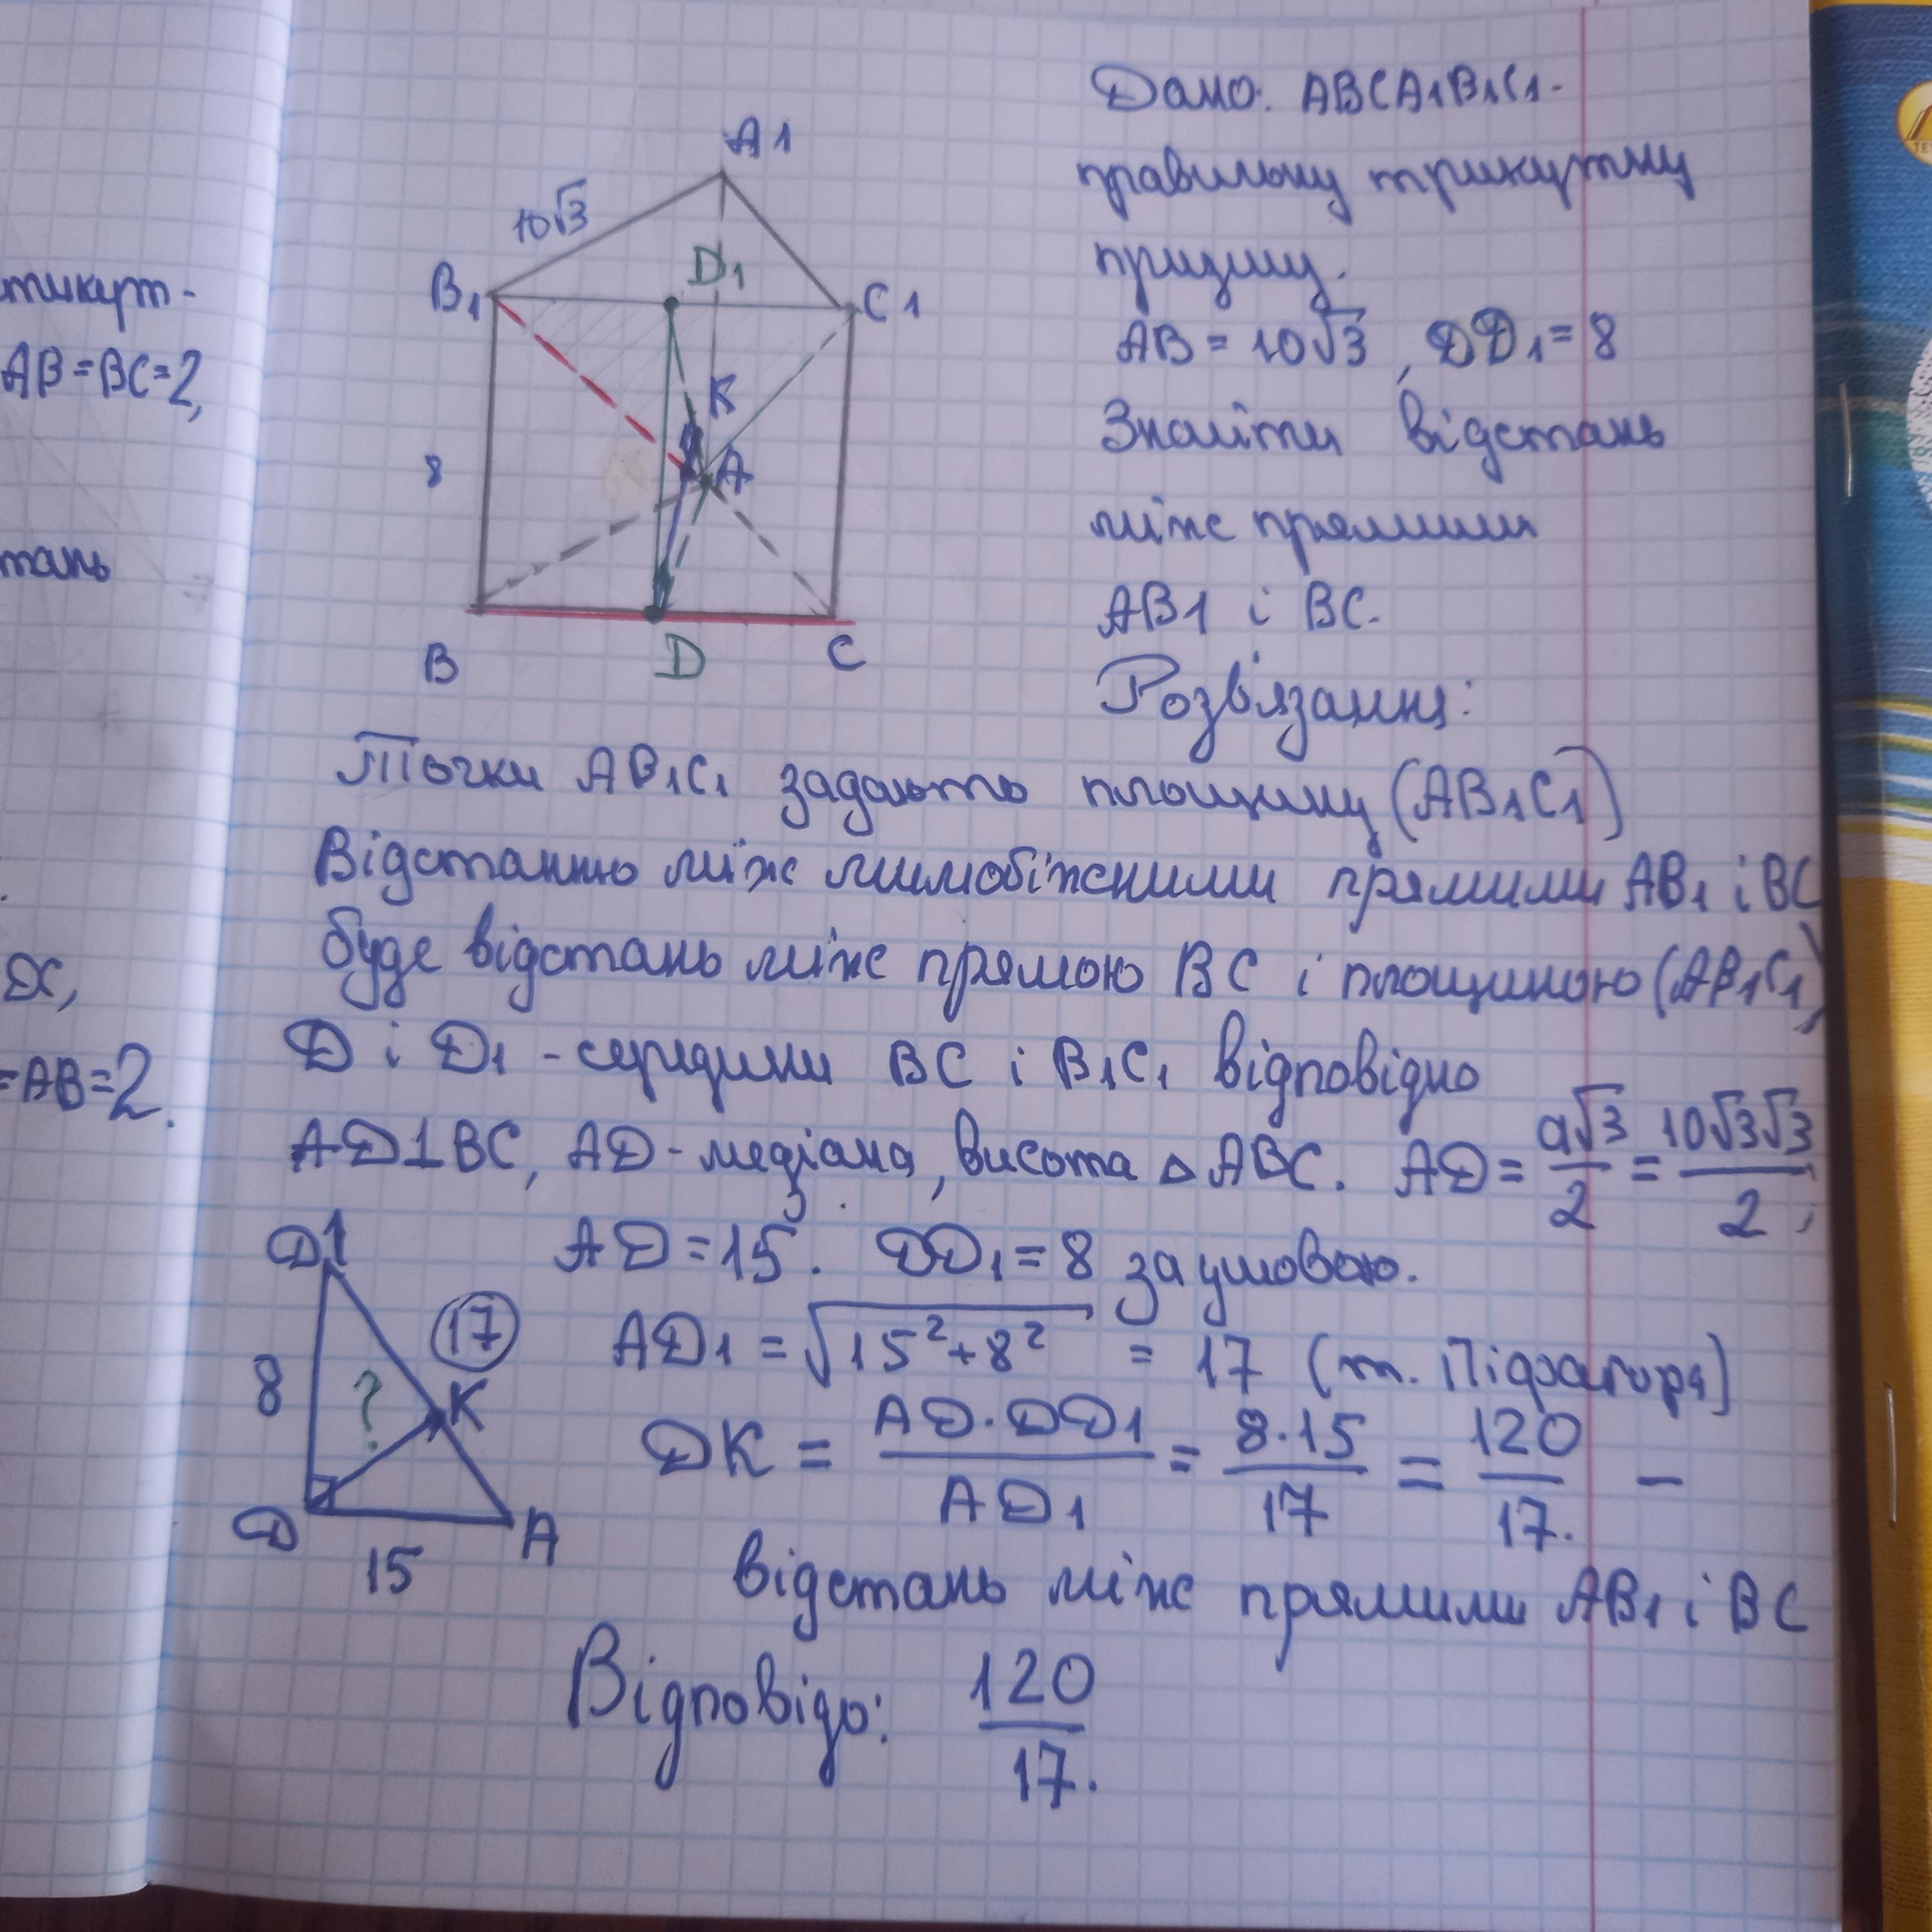 тикут-
AB=BC=2,
тань
DC,
=AB=2.
A1
10√3
B1
D1
C1
K
8
A
B
D
C
Дано: ABCA1B1C1-
правильну трикутну
призму.
AB = 10√3, DD1 = 8
Знайти відстань
між прямими
AB1 і BC.
Розв'язання:
Точки AB1C1 задають площину (AB1C1)
Відстанню між мимобіжними прямими AB1 і BC
буде відстань між прямою BC і площиною (AB1C1)
D і D1 - середини BC і B1C1 відповідно
AD⊥BC, AD - медіана, висота △ABC. AD = a√3/2 = 10√3√3/2;
AD = 15. DD1 = 8 за умовою.
AD1 = √15²+8² = 17 (т. Піфагора)
DK = AD·DD1/AD1 = 8·15/17 = 120/17. -
відстань між прямими AB1 і BC
D1
17
8
?
K
D
15
A
Відповідь: 120/17.